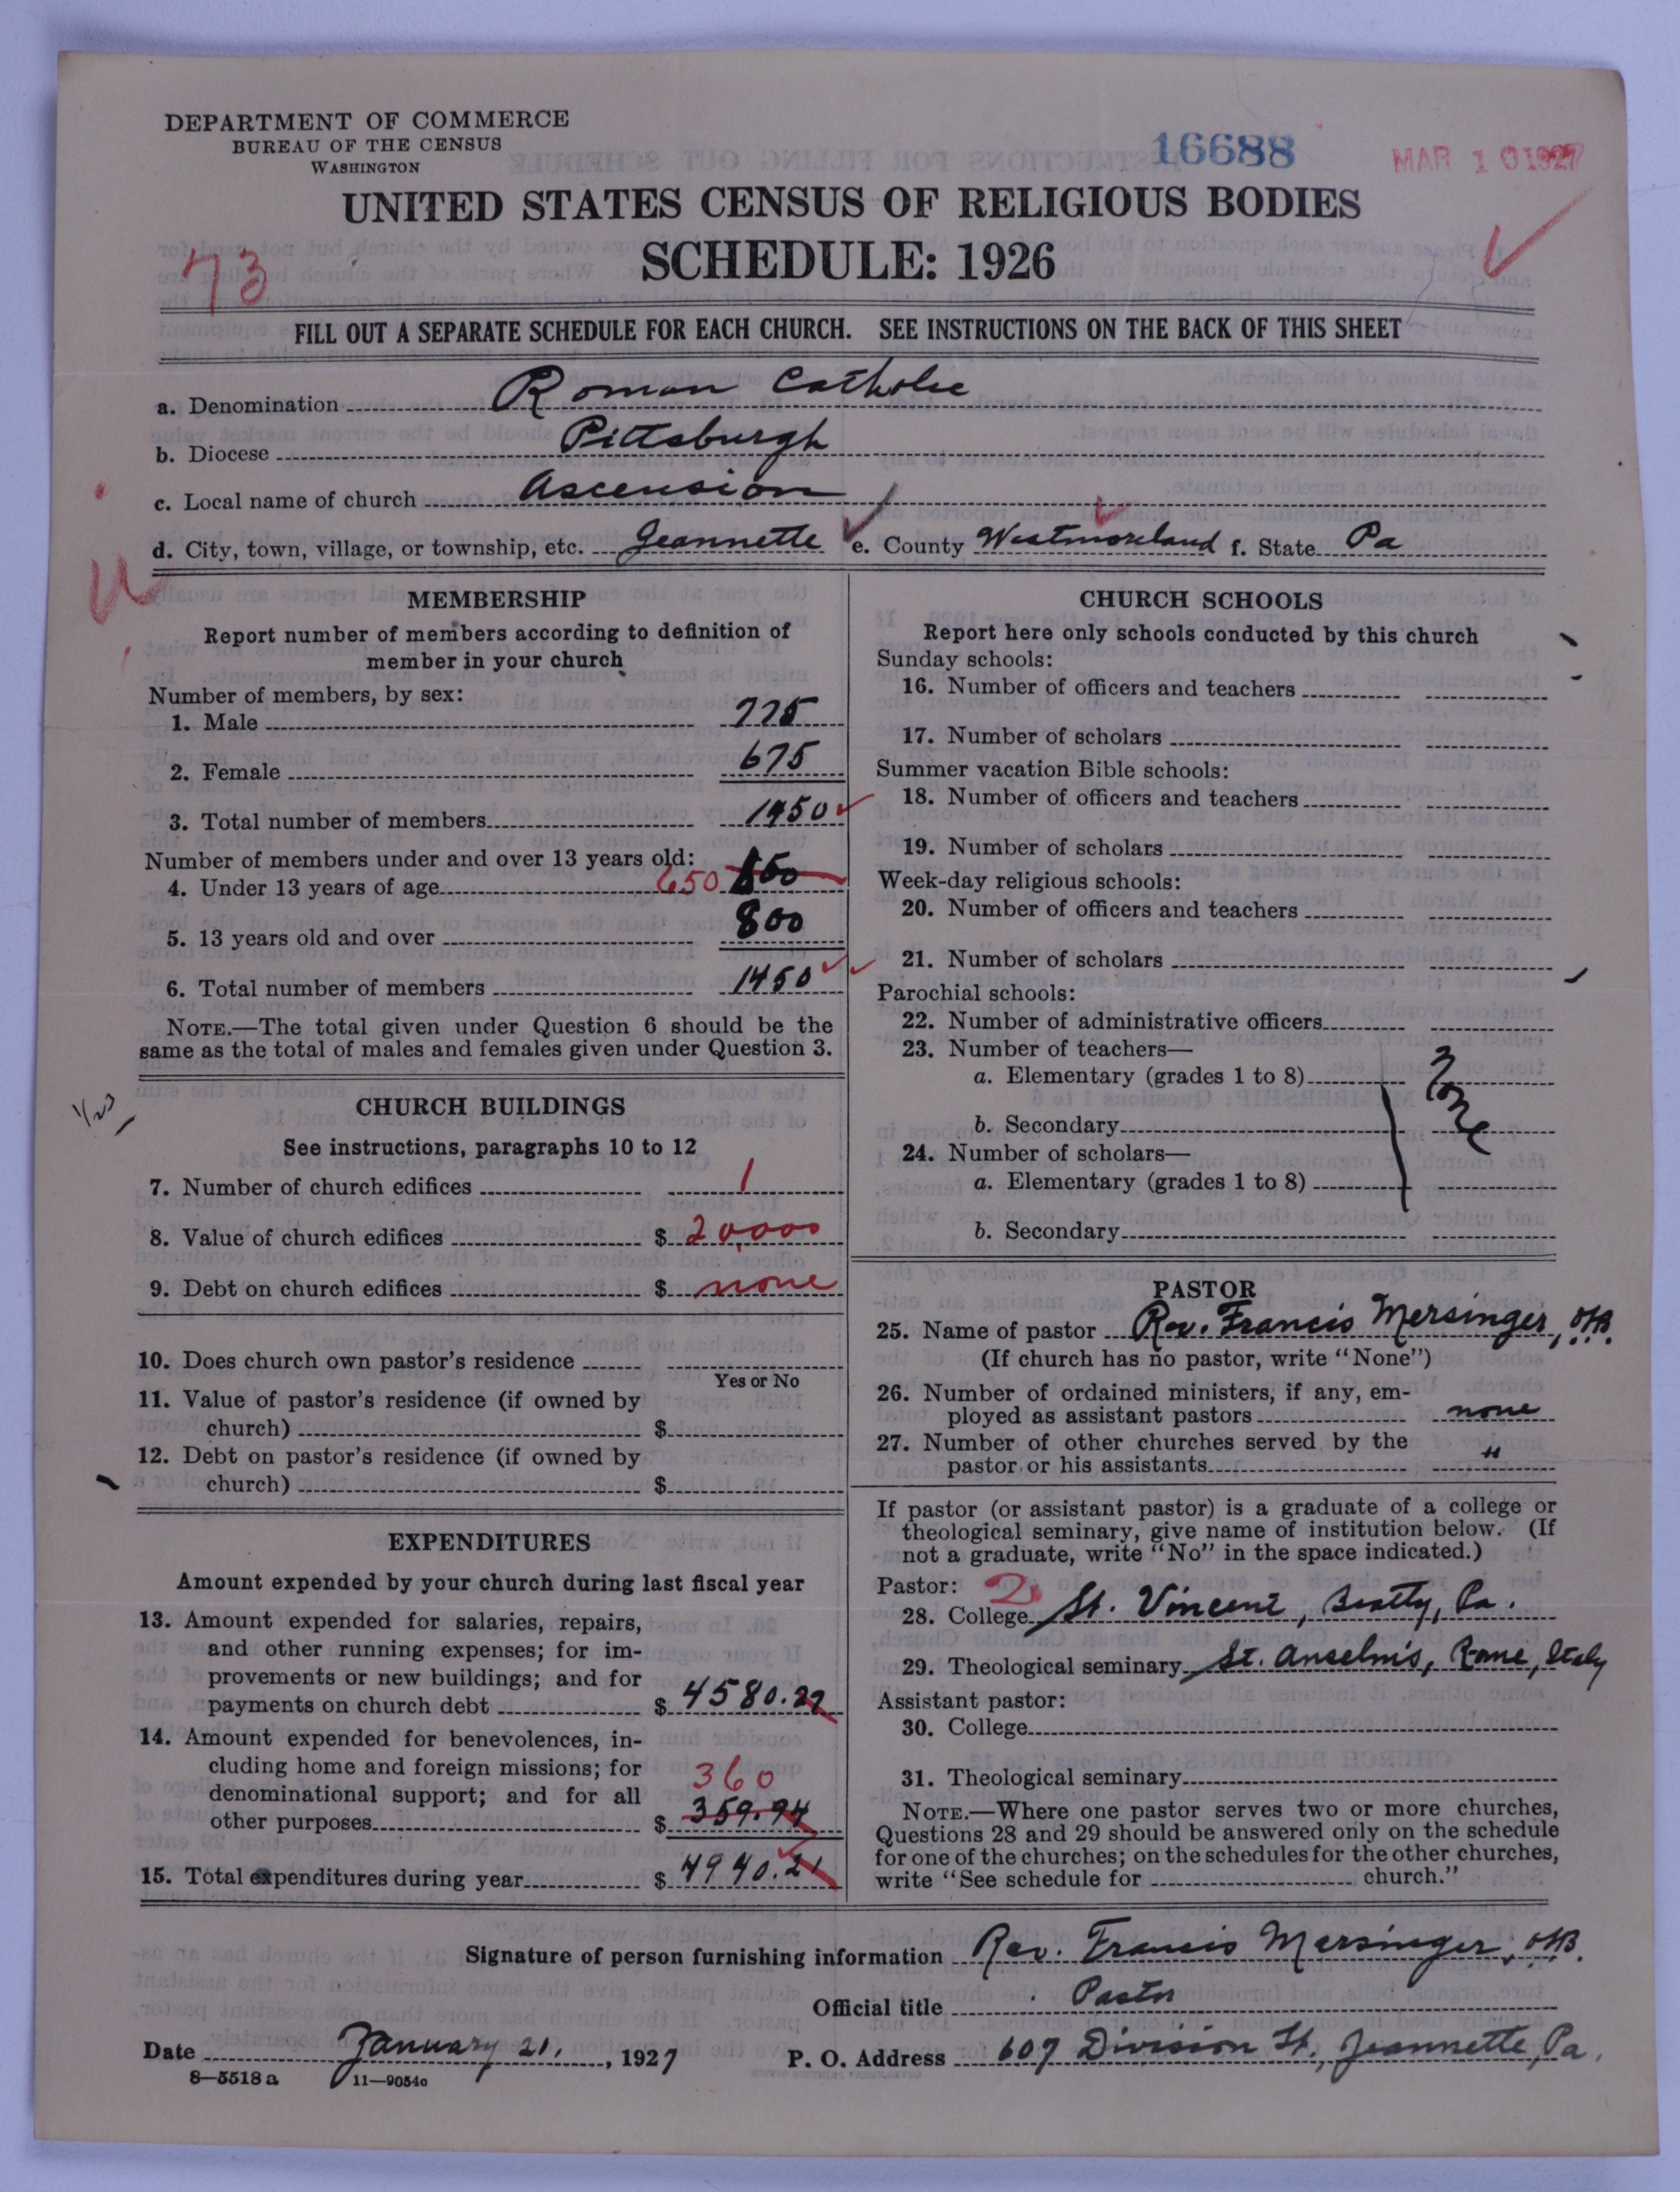 DEPARTMENT OF COMMERCE
BUREAU OF THE CENSUS
WASHINGTON
16688
MAR 10 1927
UNITED STATES CENSUS OF RELIGIOUS BODIES
73
SCHEDULE: 1926
FILL OUT A SEPARATE SCHEDULE FOR EACH CHURCH. SEE INSTRUCTIONS ON THE BACK OF THIS SHEET
a. Denomination Roman Catholic
b. Diocese Pittsburgh
c. Local name of church Ascension
d. City, town, village, or township, etc. Jeannette e. County Westmoreland f. State Pa
MEMBERSHIP
Report number of members according to definition of
member in your church
Number of members, by sex:
1. Male 775
2. Female 675
3. Total number of members 1450
Number of members under and over 13 years old:
4. Under 13 years of age 650
5. 13 years old and over 800
6. Total number of members 1450
NOTE.—The total given under Question 6 should be the
same as the total of males and females given under Question 3.
1/23
CHURCH BUILDINGS
See instructions, paragraphs 10 to 12
7. Number of church edifices 1
8. Value of church edifices $ 20,000
9. Debt on church edifices $ none
10. Does church own pastor's residence
Yes or No
11. Value of pastor's residence (if owned by
church) $
12. Debt on pastor's residence (if owned by
church) $
EXPENDITURES
Amount expended by your church during last fiscal year
13. Amount expended for salaries, repairs,
and other running expenses; for im-
provements or new buildings; and for
payments on church debt $ 4580.27
14. Amount expended for benevolences, in-
cluding home and foreign missions; for
denominational support; and for all
360
other purposes $ 359.94
15. Total expenditures during year $ 4940.21
CHURCH SCHOOLS
Report here only schools conducted by this church
Sunday schools:
16. Number of officers and teachers
17. Number of scholars
Summer vacation Bible schools:
18. Number of officers and teachers
19. Number of scholars
Week-day religious schools:
20. Number of officers and teachers
21. Number of scholars
Parochial schools:
22. Number of administrative officers
23. Number of teachers—
a. Elementary (grades 1 to 8)
None
b. Secondary
24. Number of scholars—
a. Elementary (grades 1 to 8)
b. Secondary
PASTOR
25. Name of pastor Rev. Francis Mersinger, O.S.B.
(If church has no pastor, write "None")
26. Number of ordained ministers, if any, em-
ployed as assistant pastors none
27. Number of other churches served by the
pastor or his assistants "
If pastor (or assistant pastor) is a graduate of a college or
theological seminary, give name of institution below. (If
not a graduate, write "No" in the space indicated.)
Pastor: 2
28. College St. Vincent, Beatty, Pa.
29. Theological seminary St. Anselm's, Rome, Italy
Assistant pastor:
30. College
31. Theological seminary
NOTE.—Where one pastor serves two or more churches,
Questions 28 and 29 should be answered only on the schedule
for one of the churches; on the schedules for the other churches,
write "See schedule for church."
Signature of person furnishing information Rev. Francis Mersinger, O.S.B.
Official title Pastor
Date January 21, 1927 P. O. Address 607 Division St., Jeannette, Pa.
8—5518a 11—9054c